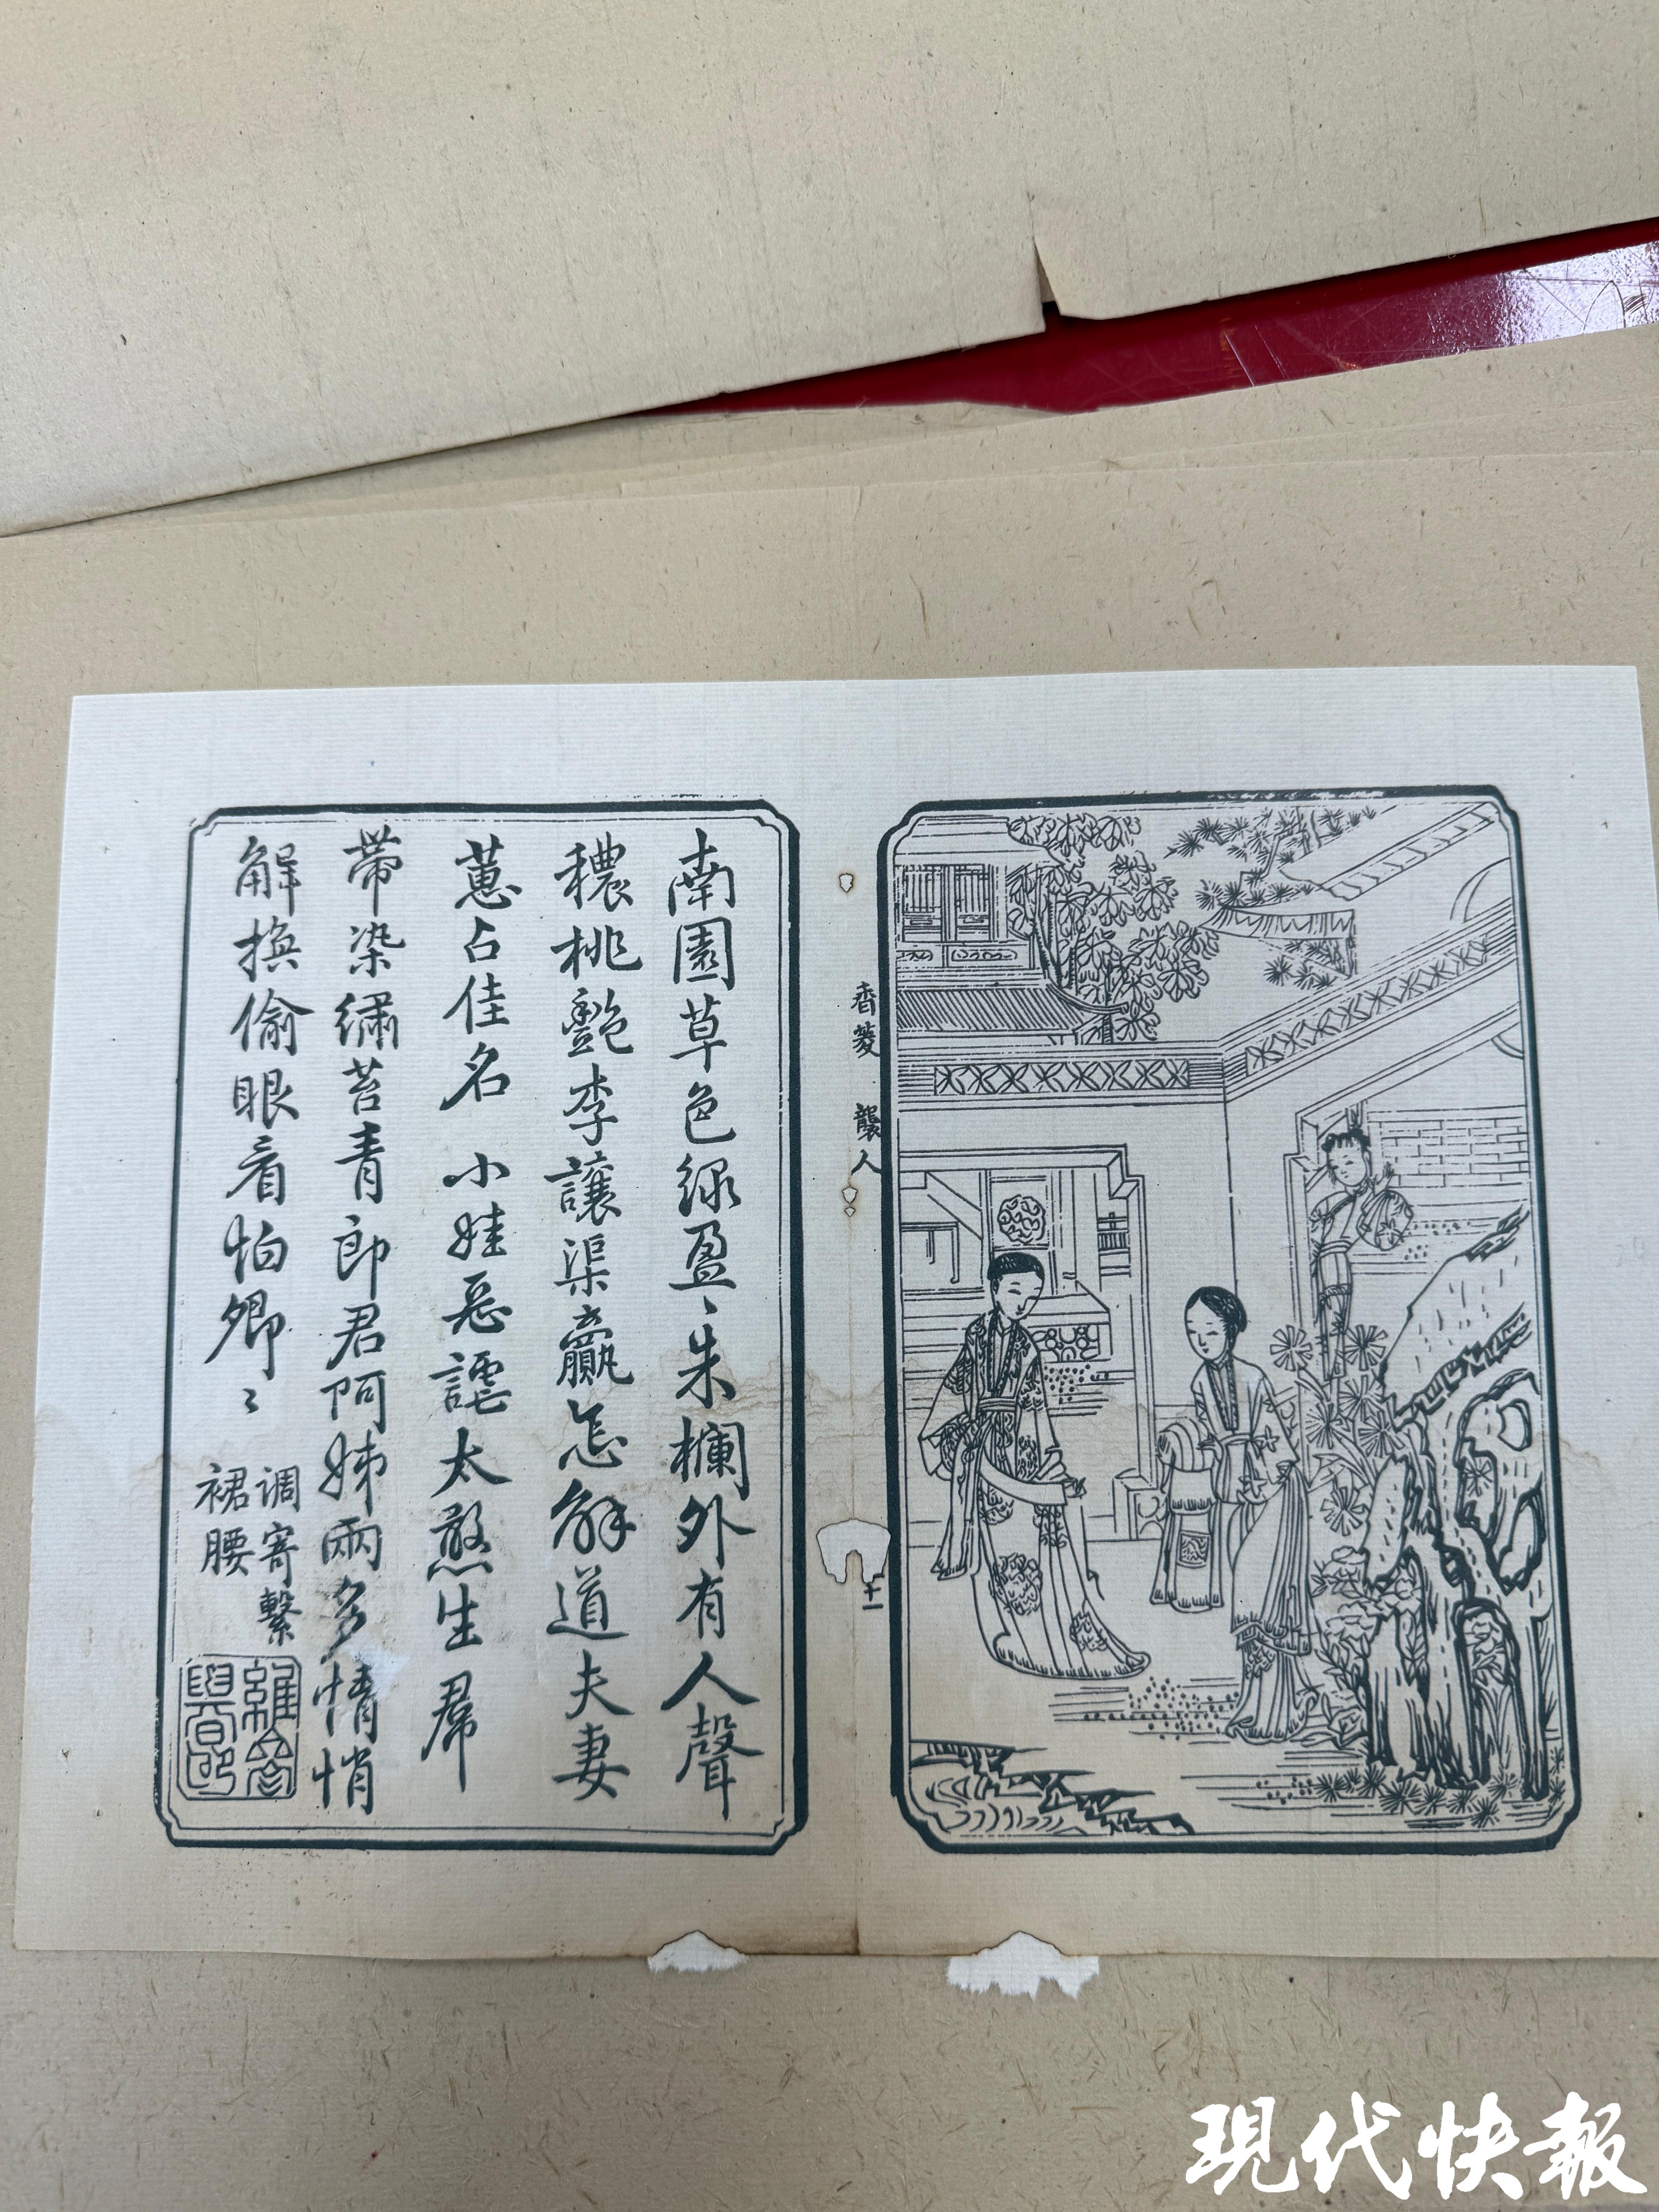 南園草色緑盈〻朱欄外有人聲
穠桃艷李讓渠贏怎解道夫妻
蕙占佳名 小娃惡謔太憨生 羣
帶染繡苔青郎君阿姊兩多情悄
解換偷眼看怕卿〻
调寄繫
裙腰
香菱 襲人
十二
現代快報